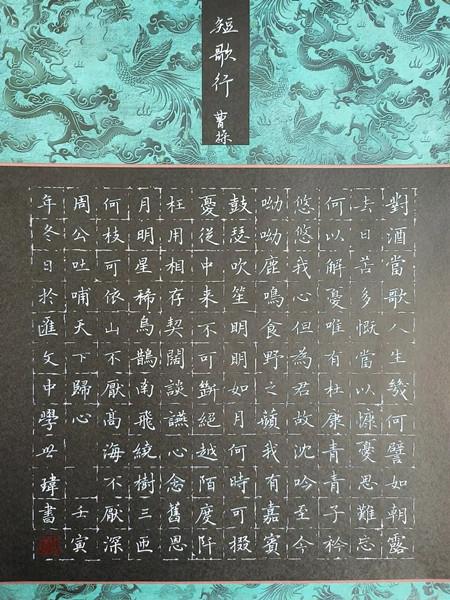 短歌行 曹操
對酒當歌人生幾何譬如朝露
去日苦多慨當以慷憂思難忘
何以解憂唯有杜康青青子衿
悠悠我心但為君故沈吟至今
呦呦鹿鳴食野之蘋我有嘉賓
鼓瑟吹笙明明如月何時可掇
憂從中来不可斷絕越陌度阡
枉用相存契闊談讌心念舊恩
月明星稀烏鵲南飛繞樹三匝
何枝可依山不厭高海不厭深
周公吐哺天下歸心 壬寅
年冬日於匯文中學世瑋書